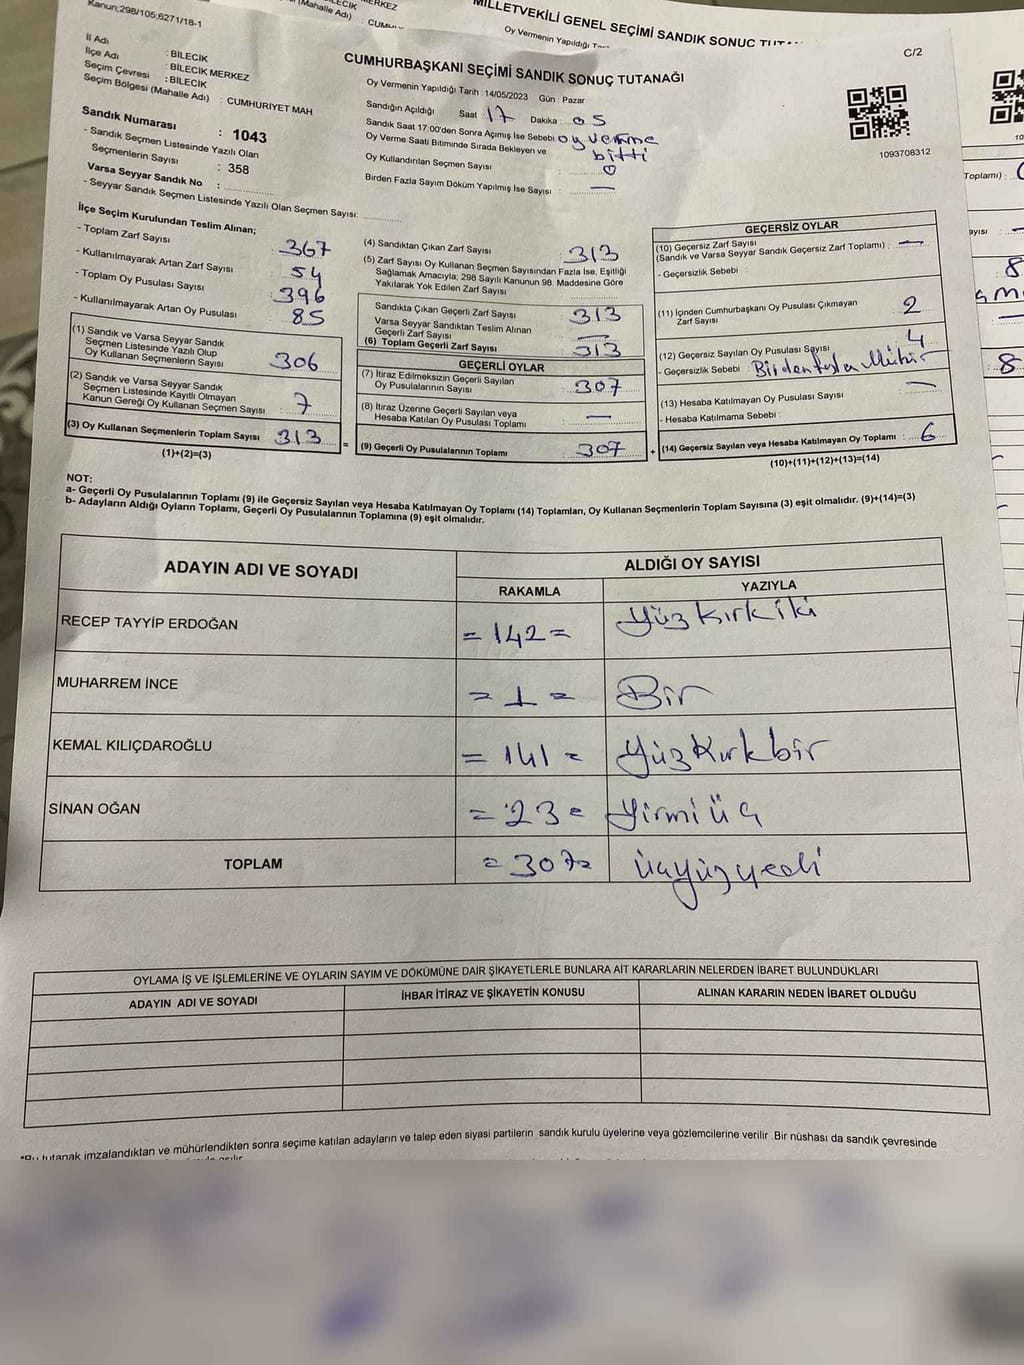 Kanun;298/105;6271/18-1
(Mahalle Adı)
MİLLETVEKİLİ GENEL SEÇİMİ SANDIK SONUÇ
Oy Vermenin Yapıldığı
C/2
İl Adı : BİLECİK
İlçe Adı : BİLECİK MERKEZ
Seçim Çevresi : BİLECİK
Seçim Bölgesi (Mahalle Adı) : CUMHURIYET MAH
CUMHURBAŞKANI SEÇİMİ SANDIK SONUÇ TUTANAĞI
Oy Vermenin Yapıldığı Tarih : 14/05/2023 Gün : Pazar
Sandığın Açıldığı Saat : 17 Dakika : 05
Sandık Saat 17:00'den Sonra Açımış İse Sebebi : oy verme
Oy Verme Saati Bitiminde Sırada Bekleyen ve bitti
Oy Kullandırılan Seçmen Sayısı : 0
Birden Fazla Sayım Döküm Yapılmış İse Sayısı : —
1093708312
Sandık Numarası : 1043
- Sandık Seçmen Listesinde Yazılı Olan
Seçmenlerin Sayısı : 358
Varsa Seyyar Sandık No :
- Seyyar Sandık Seçmen Listesinde Yazılı Olan Seçmen Sayısı:
İlçe Seçim Kurulundan Teslim Alınan;
- Toplam Zarf Sayısı : 367
- Kullanılmayarak Artan Zarf Sayısı : 54
- Toplam Oy Pusulası Sayısı : 396
- Kullanılmayarak Artan Oy Pusulası : 85
(1) Sandık ve Varsa Seyyar Sandık
Seçmen Listesinde Yazılı Olup
Oy Kullanan Seçmenlerin Sayısı : 306
(2) Sandık ve Varsa Seyyar Sandık
Seçmen Listesinde Kayıtlı Olmayan
Kanun Gereği Oy Kullanan Seçmen Sayısı : 7
(3) Oy Kullanan Seçmenlerin Toplam Sayısı : 313
(1)+(2)=(3)
(4) Sandıktan Çıkan Zarf Sayısı : 313
(5) Zarf Sayısı Oy Kullanan Seçmen Sayısından Fazla İse, Eşitliği
Sağlamak Amacıyla, 298 Sayılı Kanunun 98. Maddesine Göre
Yakılarak Yok Edilen Zarf Sayısı :
Sandıkta Çıkan Geçerli Zarf Sayısı : 313
Varsa Seyyar Sandıktan Teslim Alınan
Geçerli Zarf Sayısı : —
(6) Toplam Geçerli Zarf Sayısı : 313
GEÇERLİ OYLAR
(7) İtiraz Edilmeksizin Geçerli Sayılan
Oy Pusulalarının Sayısı : 307
(8) İtiraz Üzerine Geçerli Sayılan veya
Hesaba Katılan Oy Pusulası Toplamı : —
= (9) Geçerli Oy Pusulalarının Toplamı : 307
GEÇERSİZ OYLAR
(10) Geçersiz Zarf Sayısı
(Sandık ve Varsa Seyyar Sandık Geçersiz Zarf Toplamı) : —
- Geçersizlik Sebebi :
(11) İçinden Cumhurbaşkanı Oy Pusulası Çıkmayan
Zarf Sayısı : 2
(12) Geçersiz Sayılan Oy Pusulası Sayısı : 4
- Geçersizlik Sebebi : Birden fazla Mühür
(13) Hesaba Katılmayan Oy Pusulası Sayısı : —
- Hesaba Katılmama Sebebi :
+ (14) Geçersiz Sayılan veya Hesaba Katılmayan Oy Toplamı : 6
(10)+(11)+(12)+(13)=(14)
NOT:
a- Geçerli Oy Pusulalarının Toplamı (9) ile Geçersiz Sayılan veya Hesaba Katılmayan Oy Toplamı (14) Toplamları, Oy Kullanan Seçmenlerin Toplam Sayısına (3) eşit olmalıdır. (9)+(14)=(3)
b- Adayların Aldığı Oyların Toplamı, Geçerli Oy Pusulalarının Toplamına (9) eşit olmalıdır.
ADAYIN ADI VE SOYADI ALDIĞI OY SAYISI
RAKAMLA YAZIYLA
RECEP TAYYİP ERDOĞAN = 142 = Yüz kırk iki
MUHARREM İNCE = 1 = Bir
KEMAL KILIÇDAROĞLU = 141 = Yüz Kırk bir
SİNAN OĞAN = 23 = Yirmi üç
TOPLAM = 307 = üçyüz yedi
OYLAMA İŞ VE İŞLEMLERİNE VE OYLARIN SAYIM VE DÖKÜMÜNE DAİR ŞİKAYETLERLE BUNLARA AİT KARARLARIN NELERDEN İBARET BULUNDUKLARI
ADAYIN ADI VE SOYADI İHBAR İTİRAZ VE ŞİKAYETİN KONUSU ALINAN KARARIN NEDEN İBARET OLDUĞU
*Bu tutanak imzalandıktan ve mühürlendikten sonra seçime katılan adayların ve talep eden siyasi partilerin sandık kurulu üyelerine veya gözlemcilerine verilir .Bir nüshası da sandık çevresinde